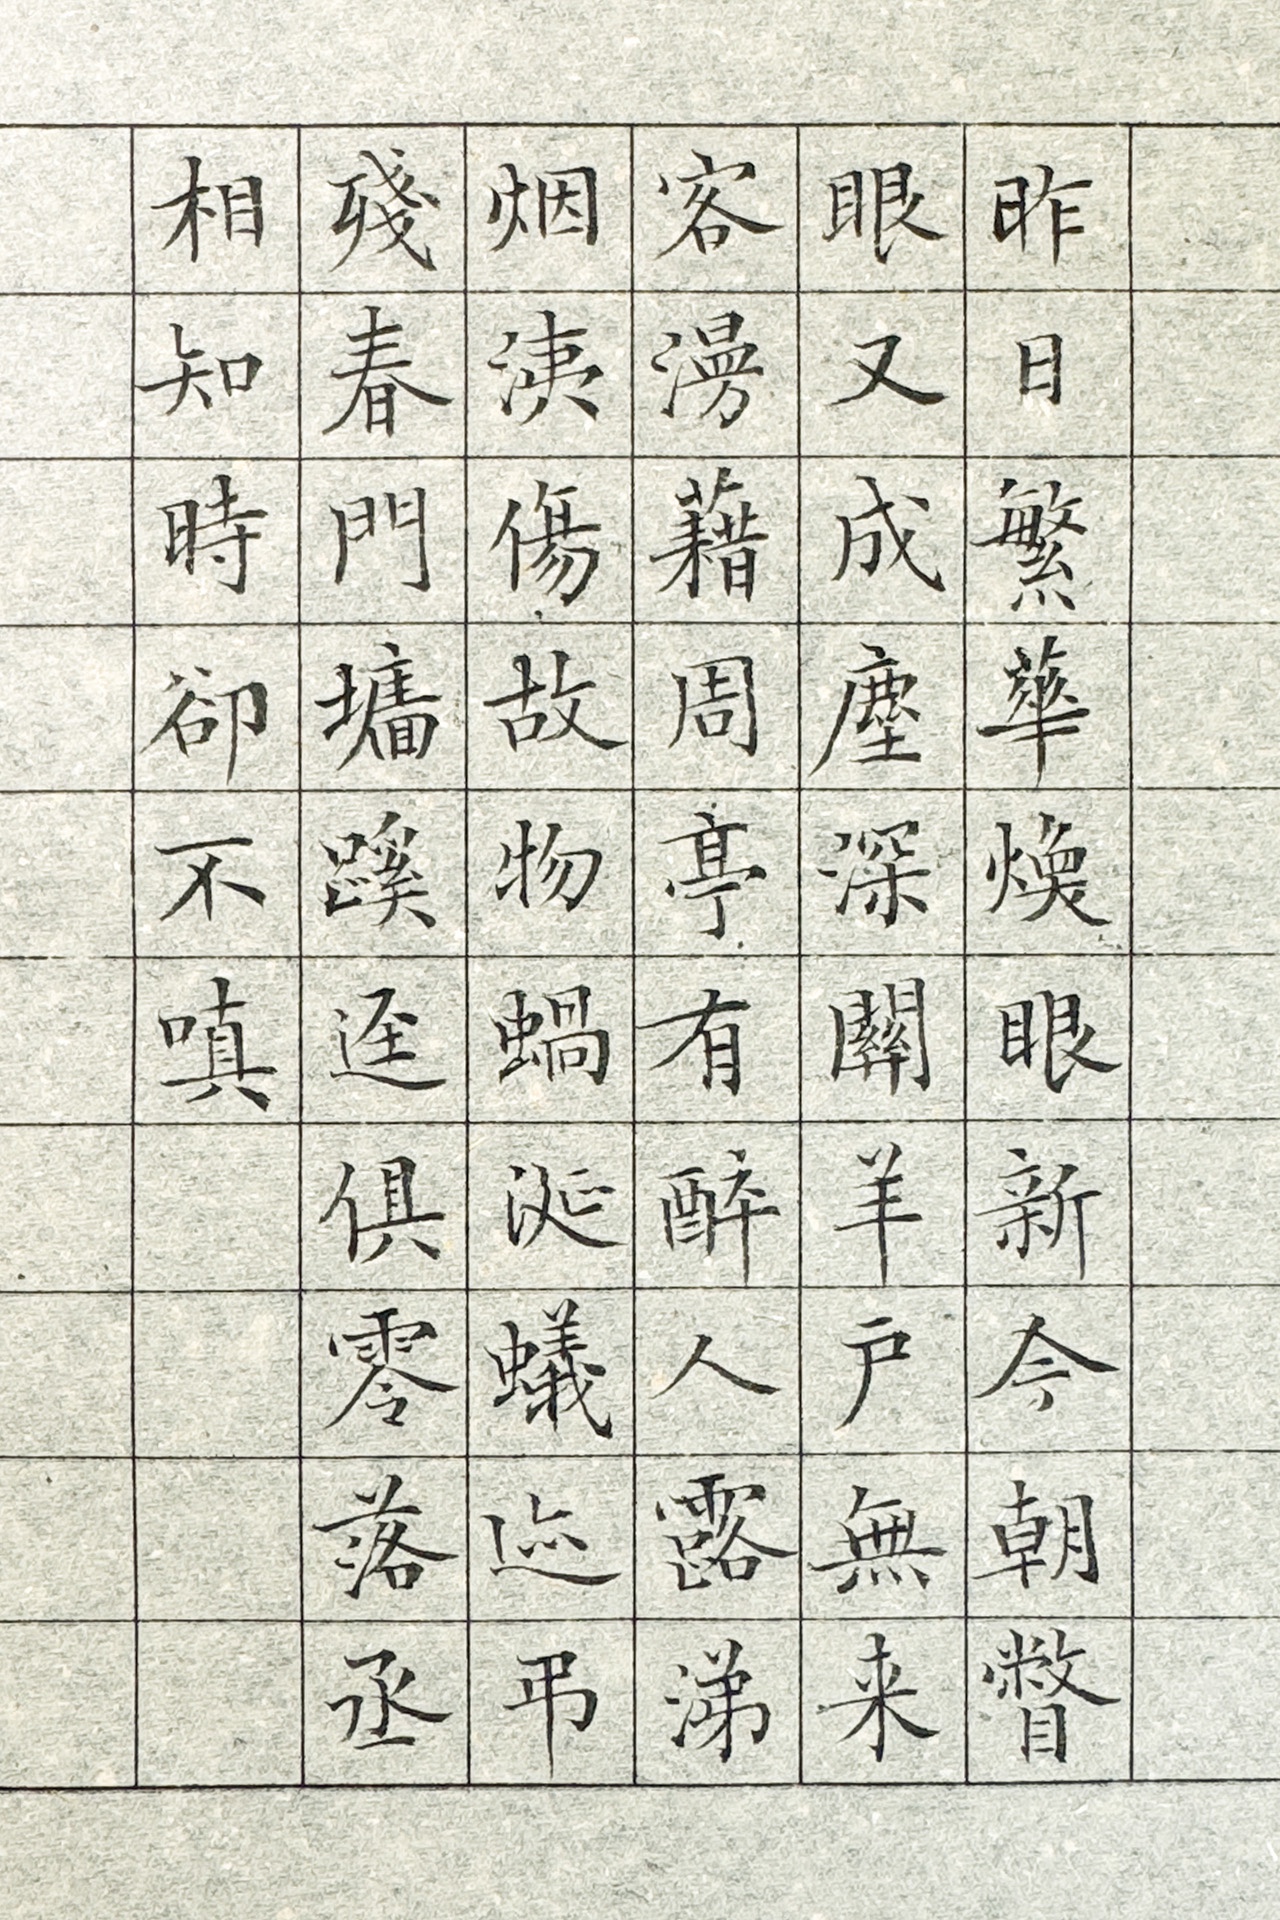 昨日繁華煥眼新今朝瞥
眼又成塵深關羊户無来
客漫藉周亭有醉人露涕
烟洟傷故物蝸涎蟻迹弔
殘春門墻蹊逕俱零落丞
相知時卻不嗔